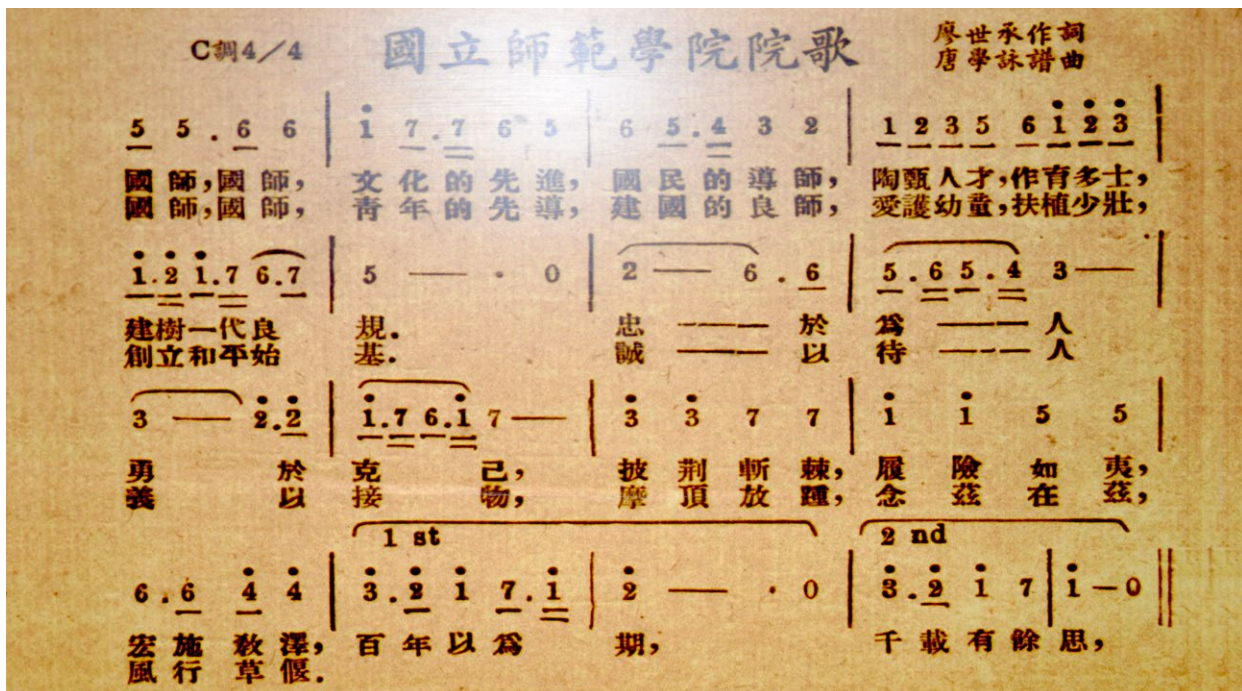 C調4/4
國立師範學院院歌
廖世承作詞
唐學詠譜曲
5 5 . 6 6 | i 7 . 7 6 5 | 6 5 . 4 3 2 | 1 2 3 5 6 i 2̇ 3̇ |
國師,國師, 文化的先進, 國民的導師, 陶甄人才,作育多士,
國師,國師, 青年的先導, 建國的良師, 愛護幼童,扶植少壯,
i . 2̇ i . 7 6 . 7 | 5 — · 0 | 2 — 6 . 6 | 5 . 6 5 . 4 3 — |
建樹一代良 規. 忠 — — — 於 為 — — — 人
創立和平始 基. 誠 — — — 以 待 — — — 人
3 — 2̇ . 2̇ | i . 7 6 . i 7 — | 3̇ 3̇ 7 7 | i i 5 5 |
勇 於 克 己, 披荆斬棘, 履險如夷,
義 以 接 物, 摩頂放踵, 念茲在茲,
1 st 2 nd
6 . 6 4̇ 4̇ | 3̇ . 2̇ i 7 . i | 2̇ — · 0 | 3̇ . 2̇ i 7 | i — 0 ||
宏施教澤, 百年以為 期, 千載有餘思,
風行草偃.